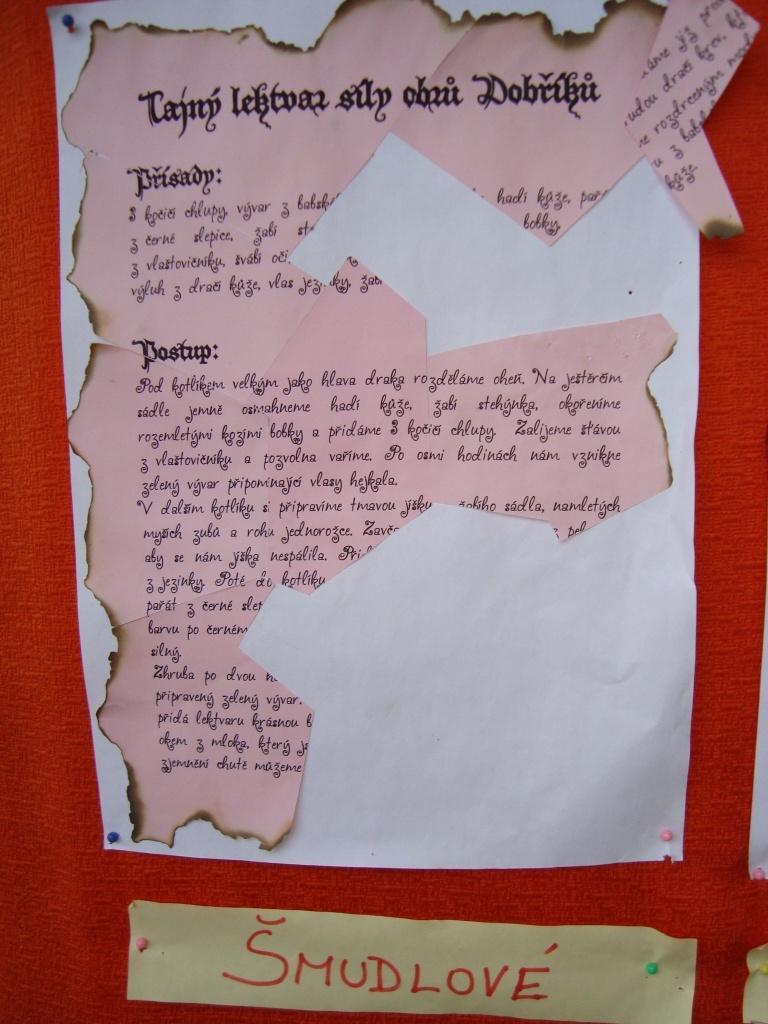 Tajný lektvar síly obrů Dobříků
Přísady:
3 kočičí chlupy, vývar z babské hadí kůže,
z černé slepice, žabí bobky,
z vlaštovičníku, švábí oči
výluh z dračí kůže, vlas jezinky, žabí
Postup:
Pod kotlíkem velkým jako hlava draka rozděláme oheň. Na ještěrčím
sádle jemně osmahneme hadí kůže, žabí stehýnka, okořeníme
rozemletými kozími bobky a přidáme 3 kočičí chlupy. Zalijeme šťávou
z vlaštovičníku a pozvolna vaříme. Po osmi hodinách nám vznikne
zelený vývar připomínající vlasy hejkala.
V dalším kotlíku si připravíme tmavou jíšku žabího sádla, namletých
myších zubů a rohu jednorožce. z
aby se nám jíška nespálila.
z jezinky. Poté do kotlíku
pařát z černé
barvu po černém
silný.
Zhruba po dvou
připravený zelený vývar.
přidá lektvaru krásnou
okem z mloka, který
zjemnění chutě můžeme
rudou dračí krev,
rozdrceným
z
kůže
ŠMUDLOVÉ